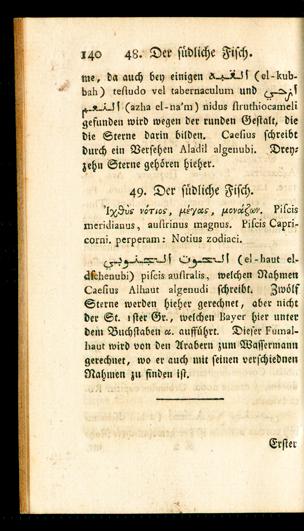 140 48. Der südliche Fisch.
me, da auch bey einigen القبة (el-kub-
bah) testudo vel tabernaculum und ازحي
النعم (azha el-na'm) nidus struthiocameli
gefunden wird wegen der runden Gestalt, die
die Sterne darin bilden. Caesius schreibt
durch ein Versehen Aladil algenubi. Drey-
zehn Sterne gehören hieher.
49. Der südliche Fisch.
Ἰχθὺς νότιος, μέγας, μονάζων. Piscis
meridianus, austrinus magnus. Piscis Capri-
corni. perperam: Notius zodiaci.
الحوت الجنوبي (el-haut el-
dschenubi) piscis australis, welchen Nahmen
Caesius Alhaut algenudi schreibt. Zwölf
Sterne werden hieher gerechnet, aber nicht
der St. 1ster Gr., welchen Bayer hier unter
dem Buchstaben α. aufführt. Dieser Fumal-
haut wird von den Arabern zum Wassermann
gerechnet, wo er auch mit seinen verschiednen
Nahmen zu finden ist.
Erster